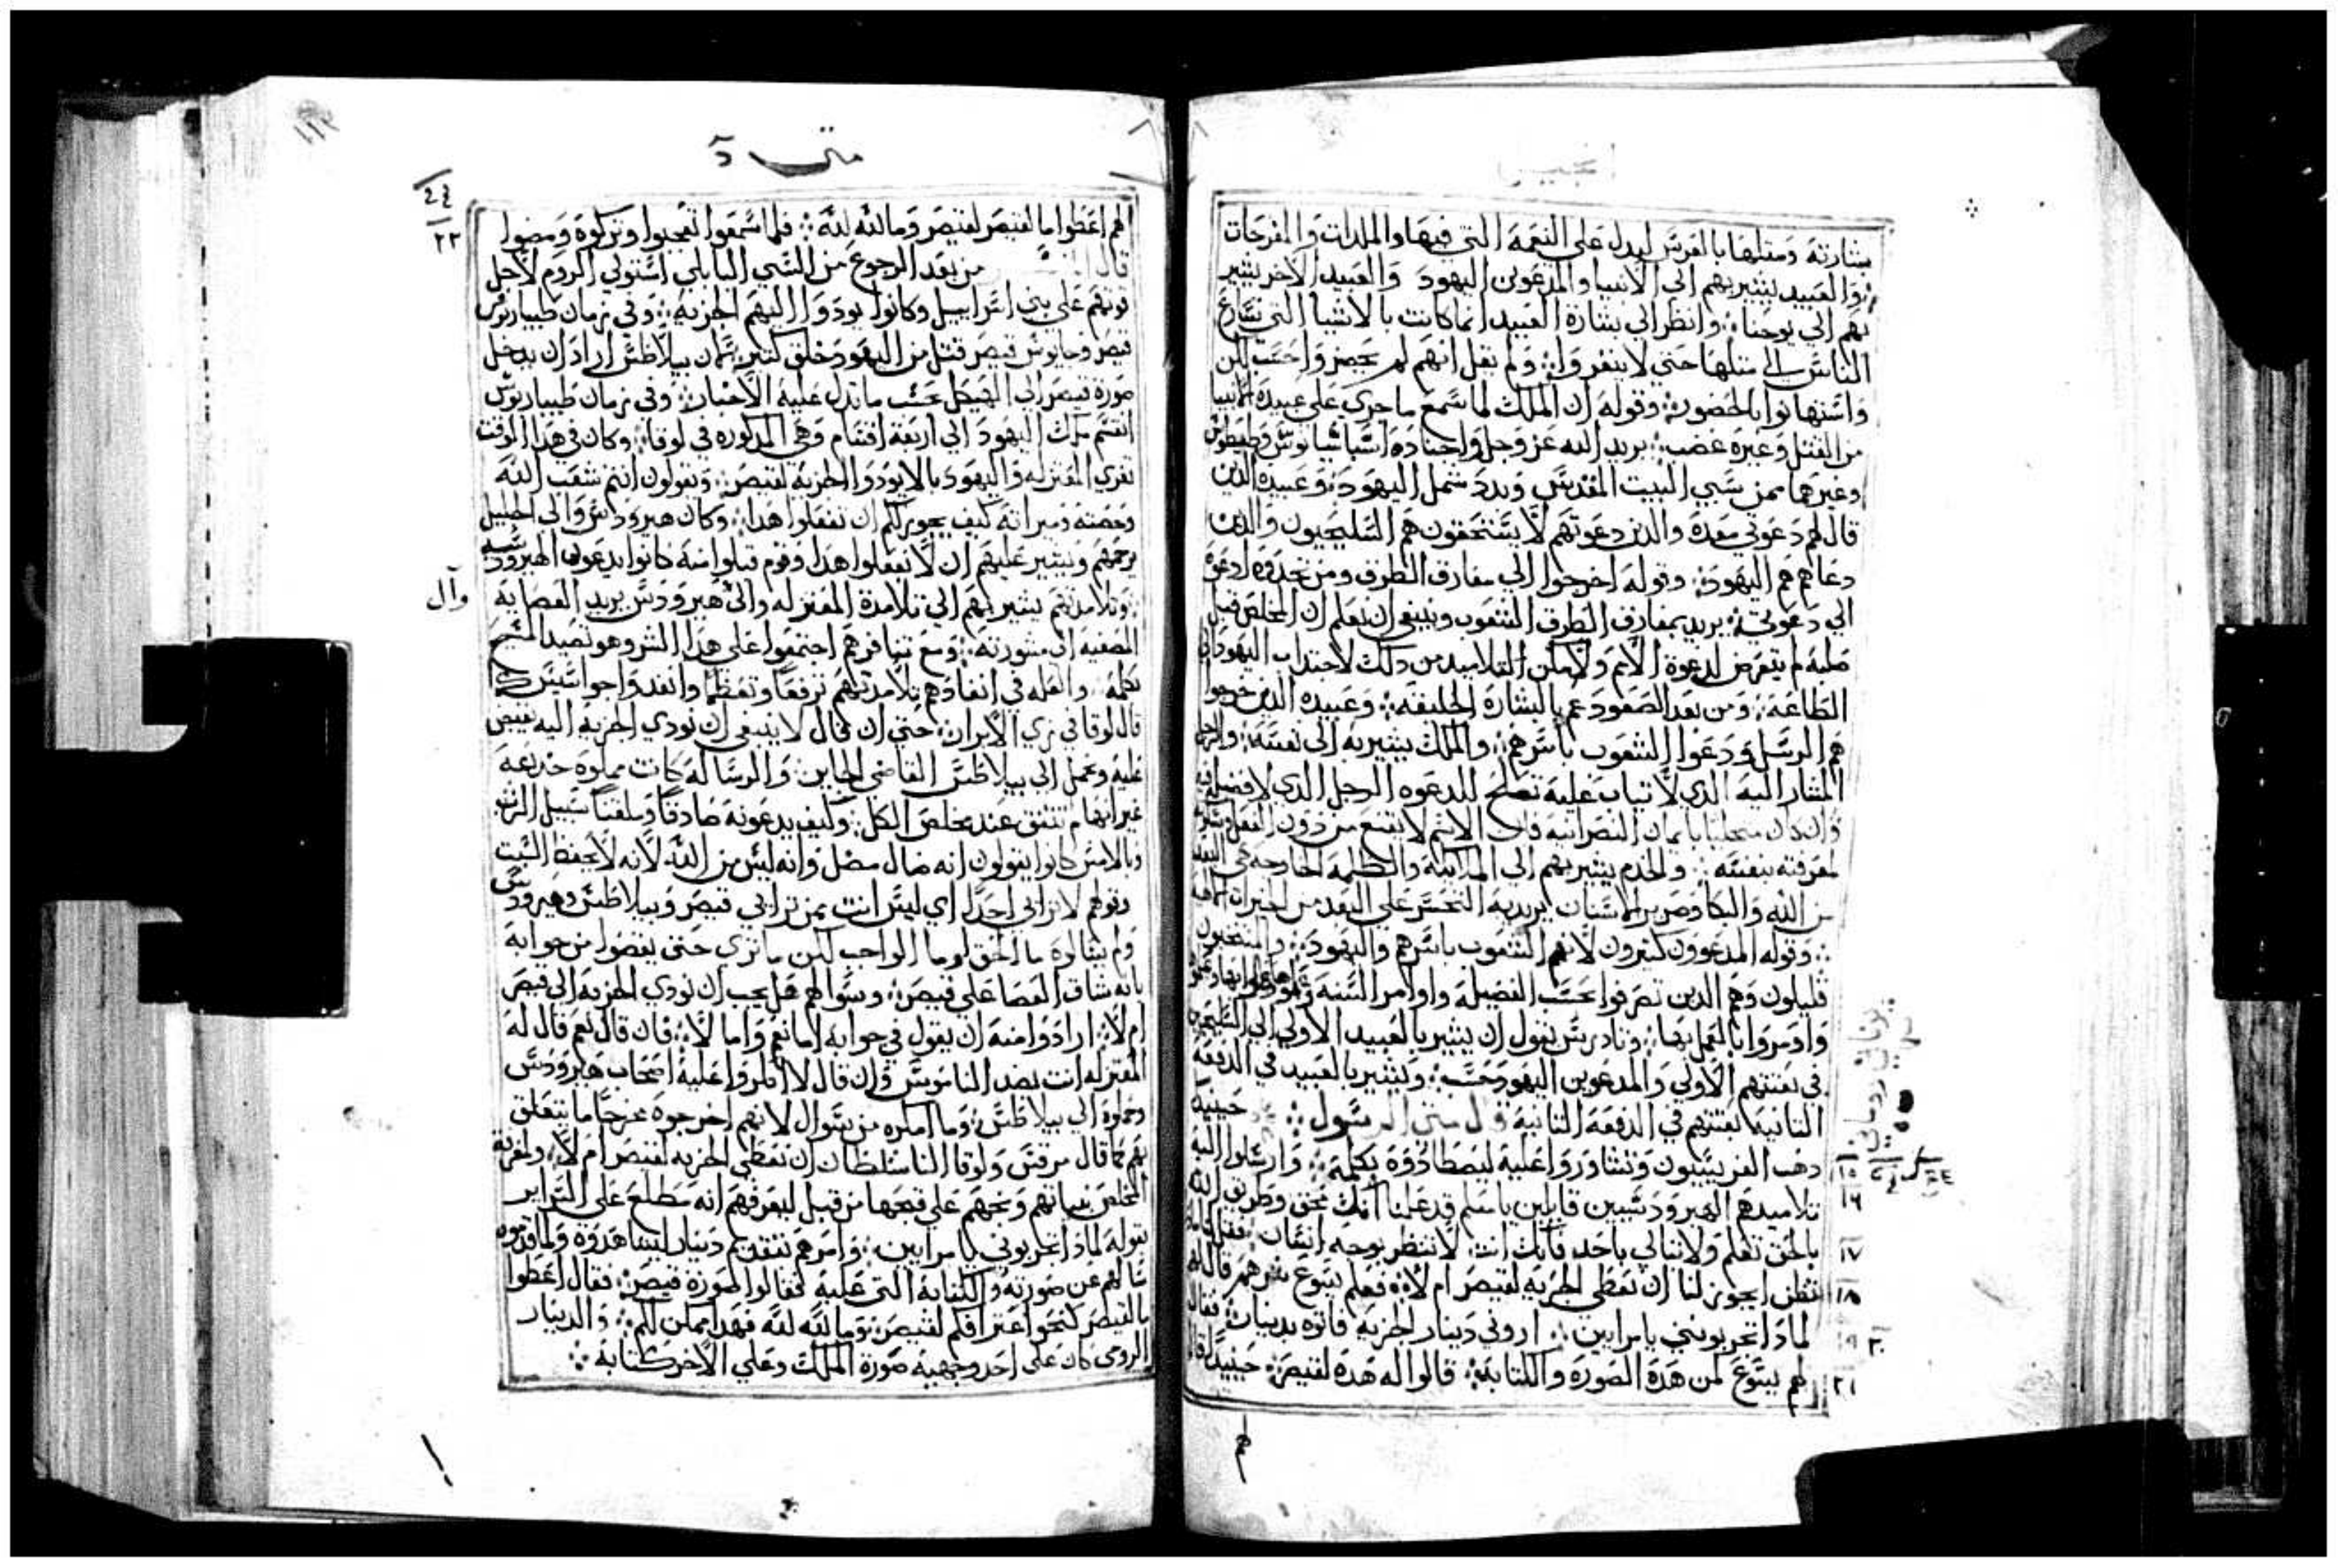 انجيل
بشارته ومثلها بالعرس ليدل على النعمة التي فيها والملذات والمفرحات
والعبيد يشير بهم الى الانبيا والمدعوين اليهود والعبيد الاخر يشير
بهم الى يوحنا وانظر الى بشارة العبيد انما كانت بالاشيا التي تسارع
الناس الى مثلها حتى لا ينفروا ولم يقل انهم لم يحضروا حسب لكن
واستهانوا بالحضور وقوله ان الملك لما سمع ما جرى على عبيده
من القتل وغيره غضب يريد الله عز وجل واجناده اسباسيانوس وطيطوس
وغيرهما ممن سبي البيت المقدس وبدد شمل اليهود وعبيده الذين
قال لهم دعوتي معدة والذين دعوتهم لا يستحقون هم السليحيون والذين
دعاهم هم اليهود وقوله اخرجوا الى مفارق الطرق ومن تجدوه ادعوه
الى دعوتي يريد بمفارق الطرق الشعوب وينبغي ان تعلم ان المخلص قبل
صلبه لم يتعرض لدعوة الامم ولا مكن التلاميذ من ذلك لاجتذاب اليهود الى
الطاعة ومن بعد الصعود عم بالبشارة الخليقة وعبيده الذين خرجوا
هم الرسل ودعوا الشعوب باسرهم والملك يشير به الى نفسه والرجل
المشار اليه الذي لا ثياب عليه تصلح للدعوه الرجل الذي لا فضيلة فيه
وان كان متحليا بايمان النصرانية فان الاسم لا يقنع من دون الفعل
لمعرفته بنفسه والخدم يشير بهم الى الملائكة والظلمة الخارجة هي البعد
من الله والبكا وصرير الاسنان يريد به التحسر على البعد من الخيرات
وقوله المدعوون كثيرون لانهم الشعوب باسرهم واليهود والمنتخبون
قليلون وهم الذين تصرفوا بحسب الفضيلة واوامر السنة
وادمروا بالعمل بها وتادرس يقول ان يشير بالعبيد الاولى الى السليحيين
في بعثتهم الاولى والمدعوين اليهود حسب ويشير بالعبيد في الدفعة
الثانية لبعثتهم في الدفعة الثانية قال متى الرسول حينيذ
ذهب الفريسيون وتشاوروا عليه ليصطادوه بكلمة وارسلوا اليه
تلاميذهم الهيرودسيين قايلين يا معلم قد علمنا انك محق وطريق الله
بالحق تعلم ولا تبالي باحد فانك انت لا تنظر بوجه انسان فقل لنا
تظن ايجوز لنا ان نعطي الجزية لقيصر ام لا فعلم يسوع شرهم قال لهم
لماذا تجربونني يا مرايين اروني دينار الجزية فاتوه بدينار فقال
لهم يسوع لمن هذة الصورة والكتابة قالوا له هذة لقيصر حينيذ قال
١٥
١٦
١٧
١٨
١٩
٢٠
٢١
متى
لهم اعطوا ما لقيصر لقيصر وما لله لله فلما سمعوا تعجبوا وتركوة ومضوا
قال من بعد الرجوع من السبي البابلي استولى الروم لاجل
قوتهم على بني اسراييل وكانوا يودوا اليهم الجزية وفي زمان طيباريوس
قيصر وجايوس قيصر قتل من اليهود خلق كثير لان بيلاطس اراد ان يدخل
صورة قيصر الى الهيكل بحسب ما تدل عليه الاخبار وفي زمان طيباريوس
انقسم ملك اليهود الى اربعة اقسام وهي المذكورة في لوقا وكان في هذا الوقت
تغري المعتزله واليهود بالا يودوا الجزية لقيصر وتقولون انتم شعب الله
وحصته وميراثه كيف يجوز لكم ان تفعلوا هذا وكان هيرودس والى الجليل
يزحمهم ويشير عليهم ان لا تفعلوا هذا وقوم قبلوا منه كانوا يدعون الهيرودسيه
وتلامذتهم يشير بهم الى تلامذة المعتزله والى هيرودس يريد العصابة
المصغيه الى مشورته ومع تنافرهم اجتمعوا على هذا الشر وهو تصيد المسيح
بكلمة والعله في انفاذهم تلامذتهم ترفعا وتعظما وانفذوا جواسيس كما
قال لوقا في زي الابرار حتى ان قال لا ينبغي ان نودي الجزية اليه يقبض
عليه وعمل الى بيلاطس القاضي الجاين والرسالة كانت مملوة خديعة
غير انها لم تتفق عند مخلص الكل وكيف يدعونه صادقا وملقنا سبيل الله
وبالامس كانوا يقولون انه ضال مضل وانه ليس من الله لانه لا يحفظ السبت
وقولهم لا ترائي احدا اي ليس انت ممن ترائي قيصر وبيلاطس وهيرودس
ولم يسالوه ما الحق لو وما الواجب لكن ما ترى حتى يقضوا من جوابه
بانه شاق العصا على قيصر وسوالهم هل يجب ان نودي الجزية الى قيصر
ام لا ارادوا منه ان يقول في جوابه اما نعم واما لا فان قال نعم قال له
المعتزله انت بضد الناموس وان قال لا امروا عليه اصحاب هيرودس
وحملوة الى بيلاطس وما امكره من سوال لانهم اخرجوه مخرجا ما يتعلق
بهم كما قال مرقس ولوقا الناسلطان ان نعطي الجزية لقيصر ام لا ولمعرفة
المخلص بنياتهم وبخهم على قبحها من قبل ليعرفهم انه مطلع على السراير
بقوله لماذا تجربوني يا مرايين وامرهم بتقديم دينار ليشاهدوه ولما قدموه
سالهم عن صورته والكتابة التي عليه فقالوا الصورة قيصر فقال اعطوا
ما لقيصر كنحو اعترافكم لقيصر وما لله لله فهذا يمكن لكم والدينار
الرومي كان على احد وجهيه صورة الملك وعلى الاخر كتابة
٢٢
وآل